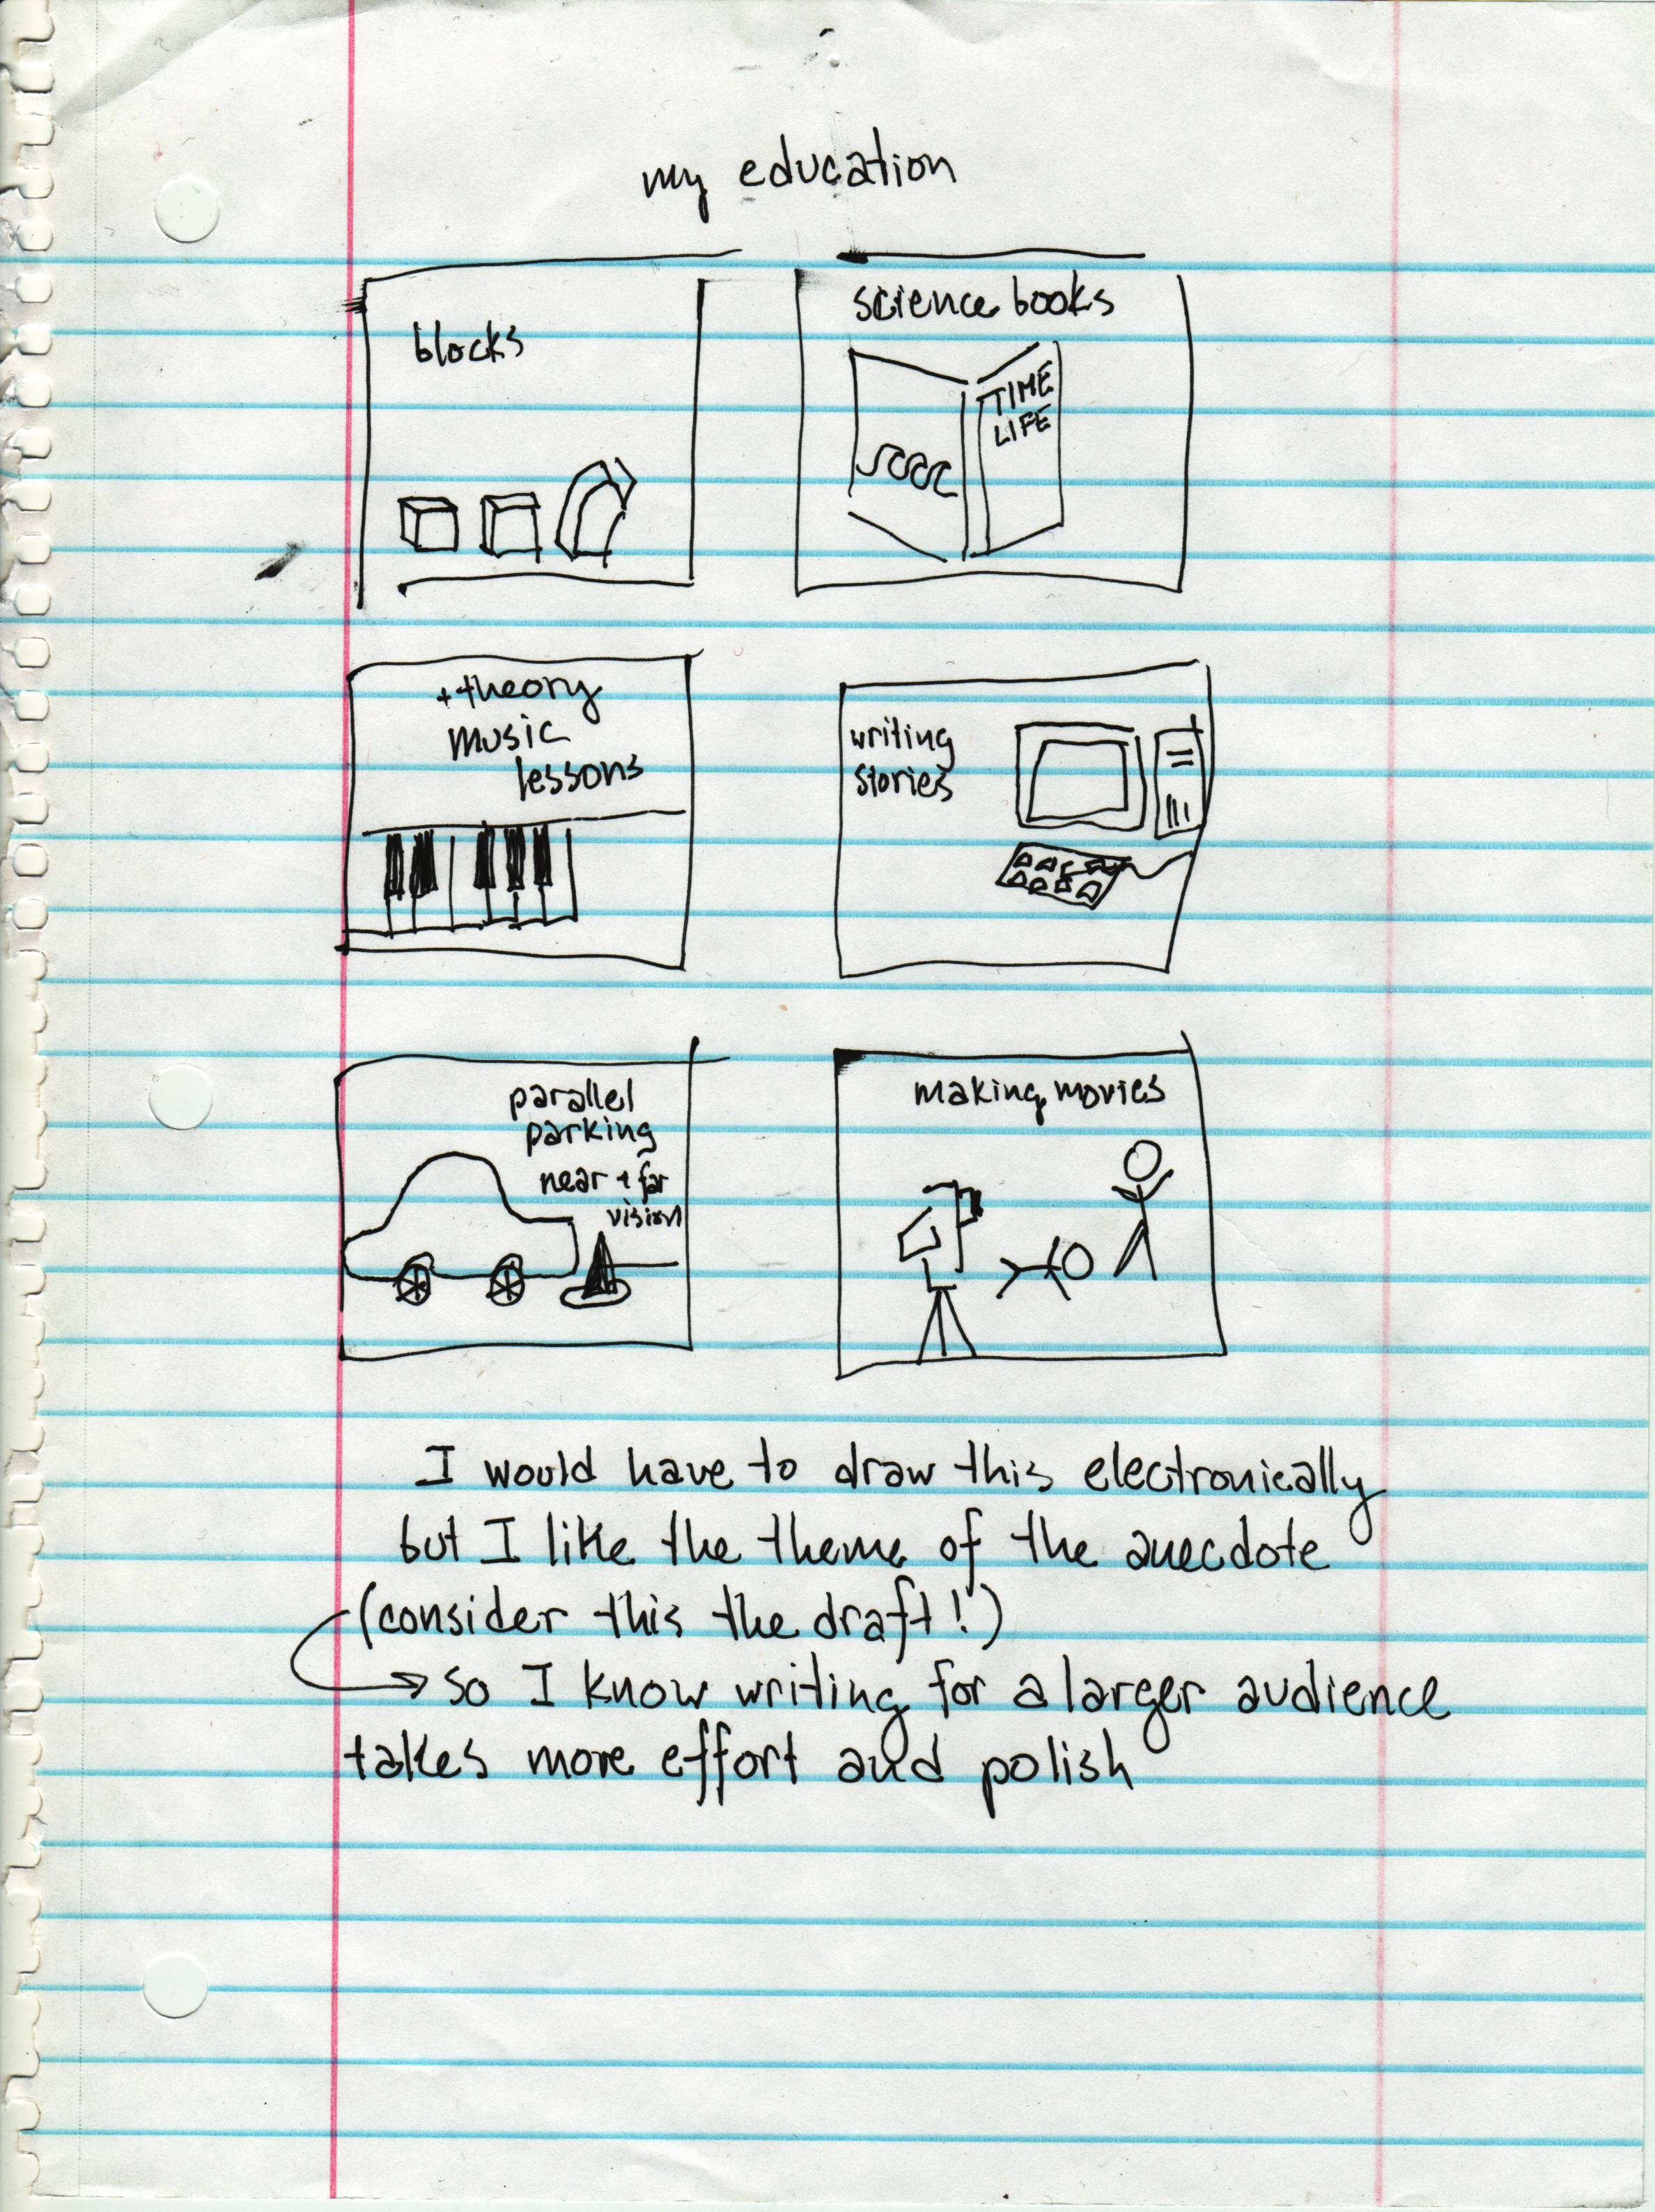 my education
blocks
science books
TIME
LIFE
+ theory
music
lessons
writing
stories
parallel
parking
near + far
vision
making movies
I would have to draw this electronically
but I like the theme of the anecdote
(consider this the draft!)
→ so I know writing for a larger audience
takes more effort and polish